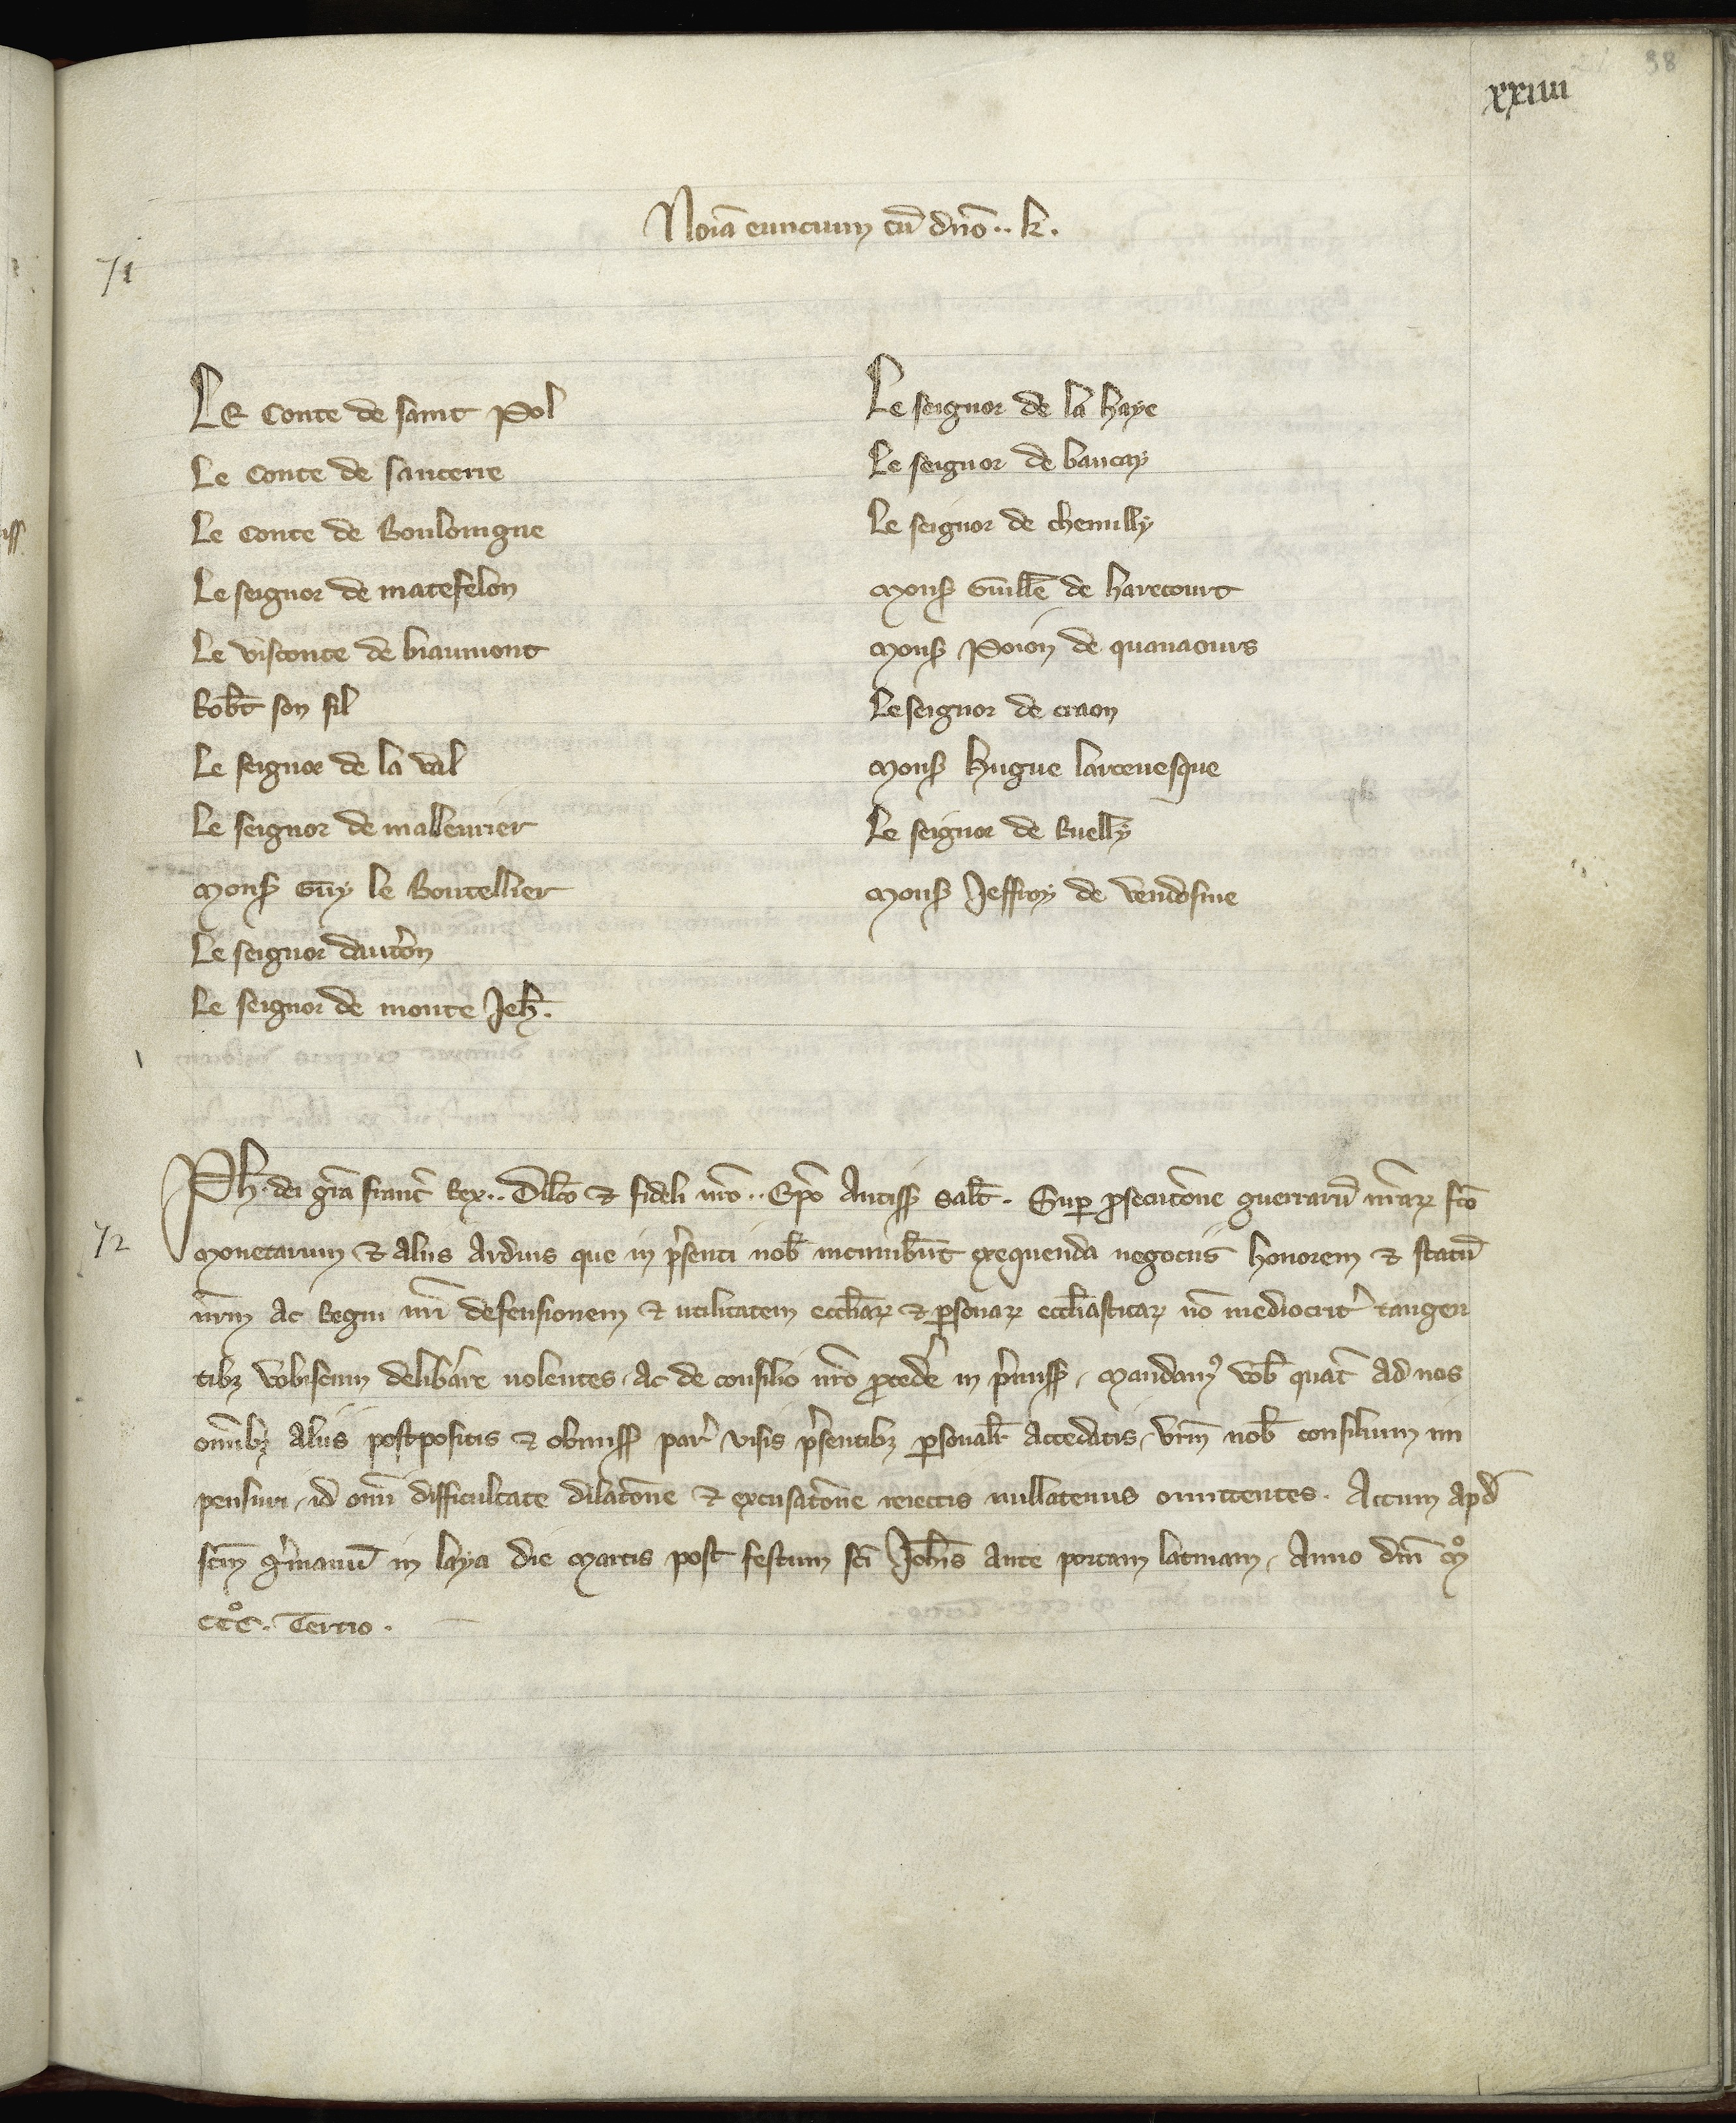 38
xxiiii
Noīa euncium cū dn̄o .. k.
71
Le Conte de saint Pol
Le Conte de sancerre
Le Conte de Bouloingne
Le seignor de matefelon
Le visconte de biaumont
Rob̄t son fil
Le seignor de la val
Le seignor de malleurier
Mons Guy le Boutellier
Le seignor dautōn
Le seignor de monte Jeh̄.
Le seignor de la haye
Le seignor de baucay
Le seignor de chemilly
Mons Guill̄e de harecourt
Mons Poion de quanaouis
Le seignor de craon
Mons hugue larcevesque
Le seignor de Ruelly
Mons Jeffroy de vendosme
72
Ph. dei gr̄a franc̄ Rex .. Dilc̄o & fideli nr̄o .. Ep̄o Antiss salt̄. Sup prosecutōne guerrarū nr̄aꝝ fc̄o
monetarum & aliis arduis que in p̄senti nob̄ incumbūt exequenda negociis honorem & statū
nr̄m ac Regni nr̄i defensionem & utilitatem eccl̄iaꝝ & ꝑsonaꝝ eccl̄iasticaꝝ nō mediocrit̄ tangen
tibꝫ vobiscum delib̄are volentes, ac de consilio nr̄o ꝓcedē in p̄miss, mandamꝰ vob̄ quat̄ ad nos
om̄ibꝫ aliis postpositis & obmiss par̄ visis p̄sentibꝫ ꝑsonalr̄ accedatis, vr̄m nob̄ consilium im
pensuri, id om̄i difficultate dilatōne & excusatōne reiectis nullatenus omittentes. Actum apd̄
sc̄m Ḡmanū in laya die martis post festum sc̄i Joh̄is ante portam latinam, Anno dn̄i Mͦ
CCCͦ. Tertio.